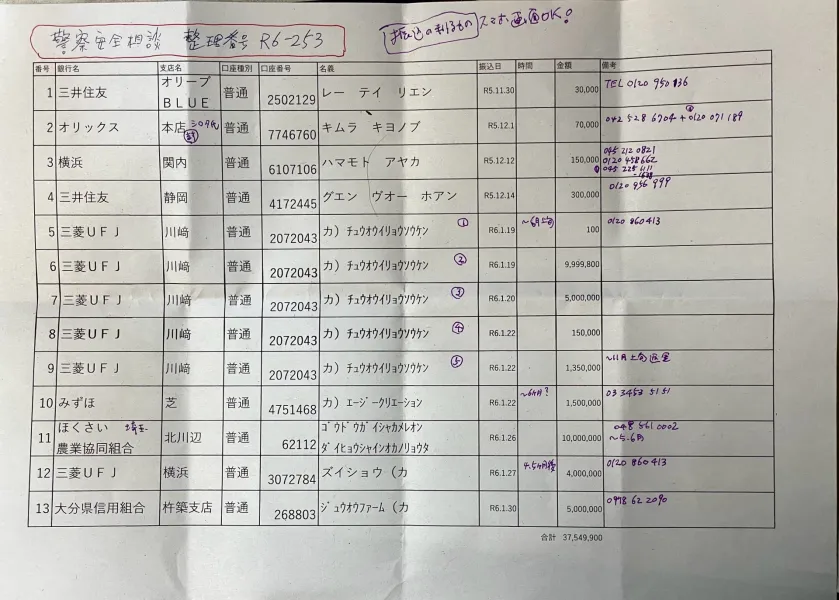 警察安全相談 整理番号 R6-253
振込の判るもの スマホ画面OK!
番号 銀行名 支店名 口座種別 口座番号 名義 振込日 時間 金額 備考
1 三井住友 オリーブBLUE 普通 2502129 レー テイ リエン R5.11.30 30,000 TEL 0120 950 836
2 オリックス 本店 普通 7746760 キムラ キヨノブ R5.12.1 70,000 042 528 6704 + 0120 071 189
3 横浜 関内 普通 6107106 ハマモト アヤカ R5.12.12 150,000 045 212 0821
0120 458 662
045 225 1111
4 三井住友 静岡 普通 4172445 グエン ヴオー ホアン R5.12.14 300,000 0120 956 999
5 三菱UFJ 川﨑 普通 2072043 カ）チュウオウイリョウソウケン ① R6.1.19 100 0120 860413
6 三菱UFJ 川﨑 普通 2072043 カ）チュウオウイリョウソウケン ② R6.1.19 9,999,800
7 三菱UFJ 川﨑 普通 2072043 カ）チュウオウイリョウソウケン ③ R6.1.20 5,000,000
8 三菱UFJ 川﨑 普通 2072043 カ）チュウオウイリョウソウケン ④ R6.1.22 150,000
9 三菱UFJ 川﨑 普通 2072043 カ）チュウオウイリョウソウケン ⑤ R6.1.22 1,350,000 ~11月上旬返金
10 みずほ 芝 普通 4751468 カ）エージークリエーション R6.1.22 ~6ヶ月? 1,500,000 03 3453 5151
11 ほくさい 埼玉 農業協同組合 北川辺 普通 62112 ゴウドウガイシャカメレオン ダイヒョウシャインオカノリョウタ R6.1.26 10,000,000 048 561 0002
~5.6月
12 三菱UFJ 横浜 普通 3072784 ズイショウ（カ R6.1.27 4.5ヶ月後 4,000,000 0120 860 413
13 大分県信用組合 杵築支店 普通 268803 ジュウオウファーム（カ R6.1.30 5,000,000 0978 62 2090
合計 37,549,900